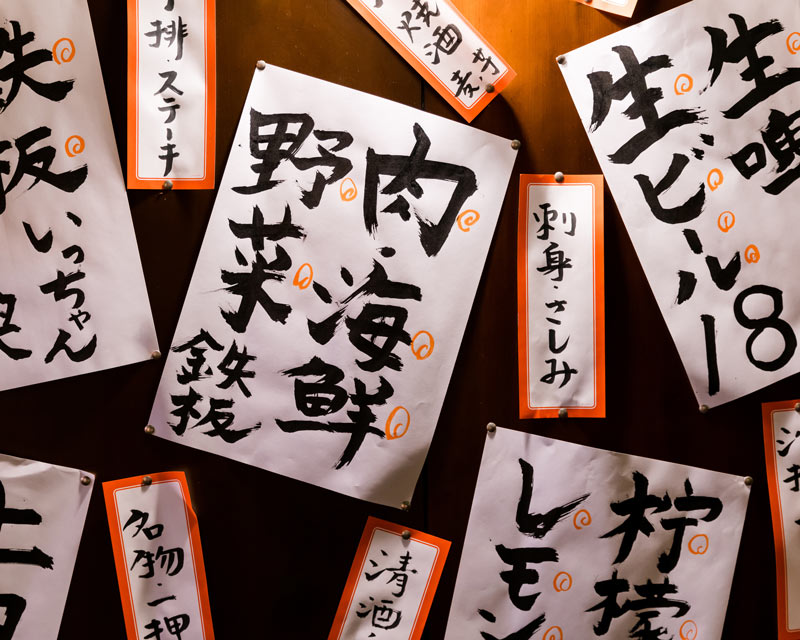 鉄板
いっちゃん
排・ステーキ
焼酒
麦芋
肉・海鮮
野菜
鉄板
刺身・さしみ
生啤
生ビール18
名物・一押
清酒
柠檬
レモン